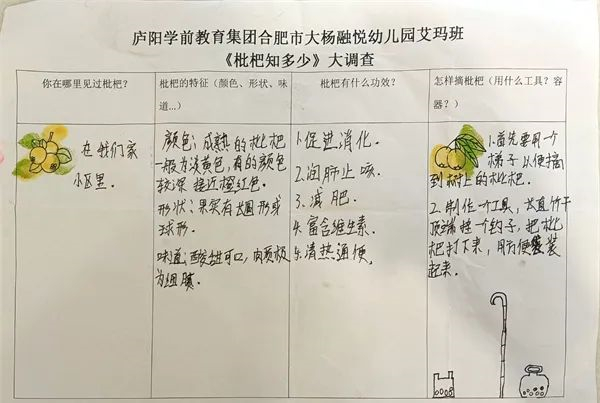 庐阳学前教育集团合肥市大杨融悦幼儿园艾玛班
《枇杷知多少》大调查
你在哪里见过枇杷?
枇杷的特征(颜色、形状、味
道...)
枇杷有什么功效?
怎样摘枇杷(用什么工具?容
器?)
在我们家
小区里.
颜色:成熟的枇杷
一般为淡黄色,有的颜色
较深 接近橙红色.
形状:果实有长圆形或
球形.
味道:酸甜可口,肉质极
为细腻.
1.促进消化.
2.润肺止咳.
3.减肥.
4.富含维生素.
5.清热通便.
1.首先要用一个
梯子以便摘
到树上的枇杷.
2.制作一个工具,长直竹干
顶端挂一个钩子,把枇
杷打下来,用方便袋装
起来.